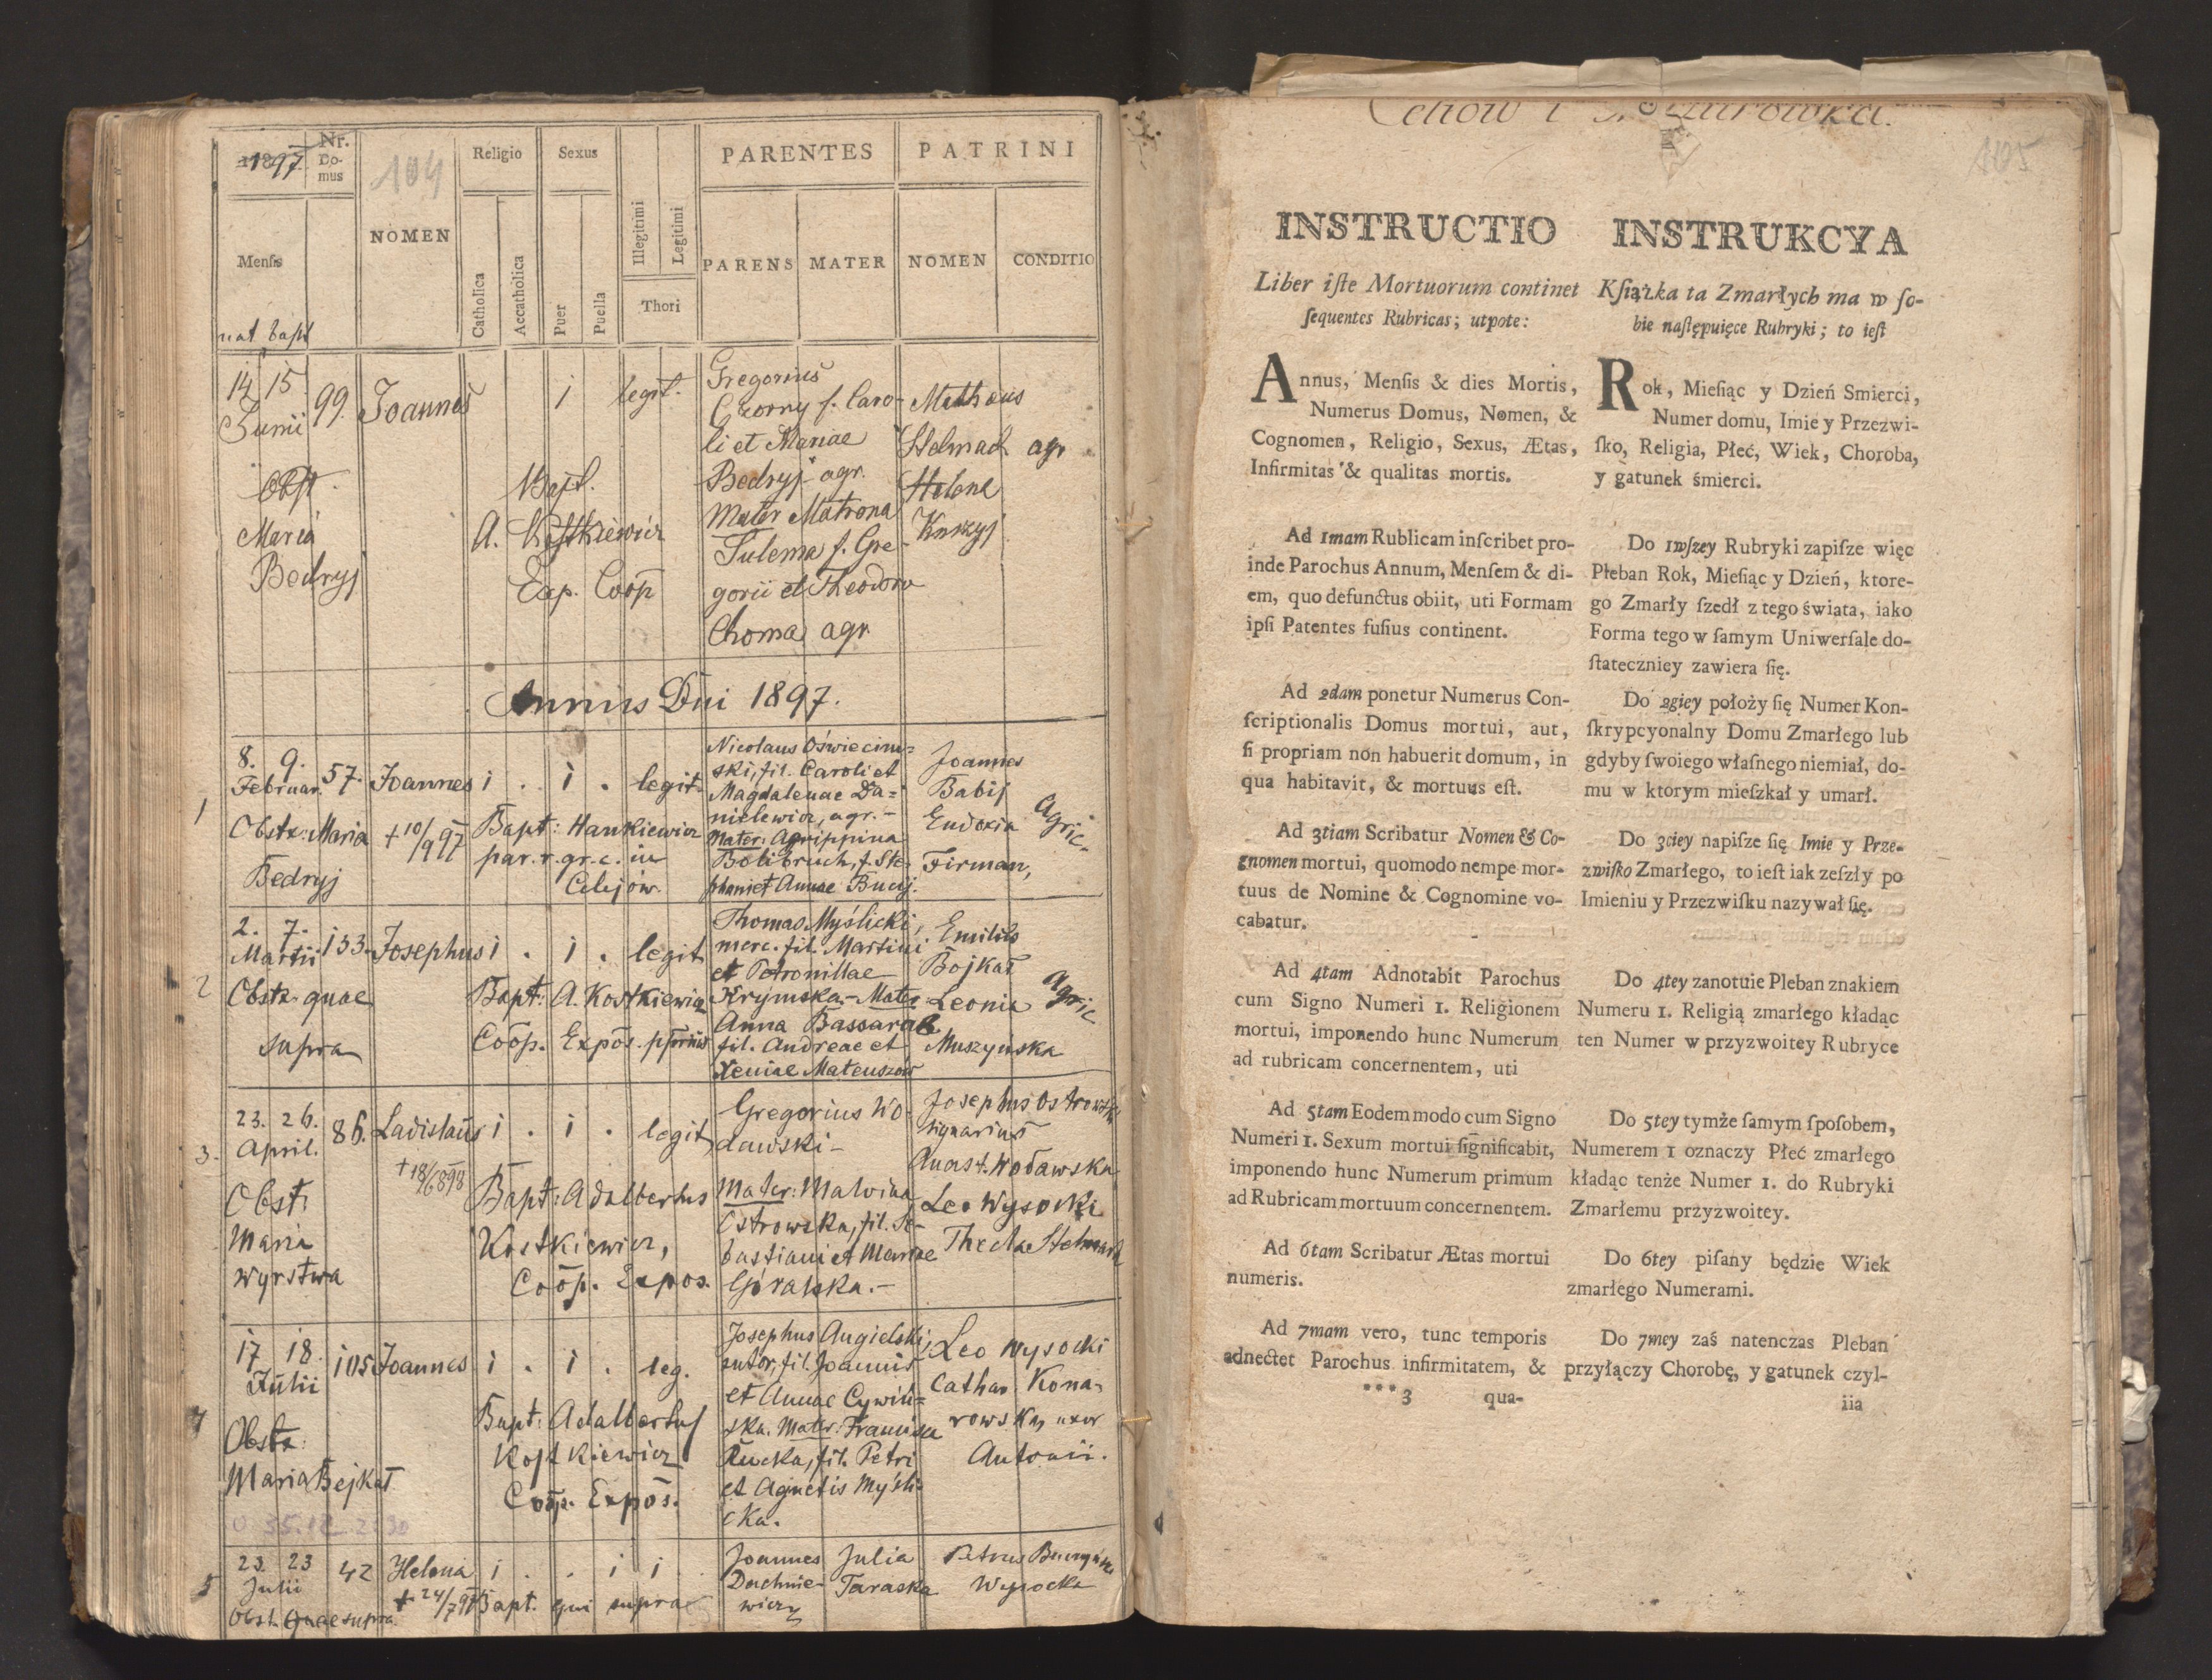 1897.
Nr.
Do-
mus
104
NOMEN
Religio
Sexus
Catholica
Accatholica
Puer
Puella
Illegitimi
Legitimi
Thori
PARENTES
PATRINI
PARENS
MATER
NOMEN
CONDITIO
Mensis
nat bapt
14 15
Junii
99.
Joannes
1
legit.
Gregorius
Czorny f. Caro-
li et Mariae
Bedryj agr.
Mater Matrona
Sulema f. Gre-
gorii et Theodora
Choma agr
Matheus
Stelmach agr
Helena
Obst.
Maria
Bedryj
Bapt.
A. Kostkiewicz
Exp. Coop
Annus Dni 1897.
1
8. 9.
Februar.
57.
Joannes
i . i . legit.
Nicolaus Oświecim-
ski, fil. Caroli et
Magdalenae Da-
nielewicz, agr. -
Mater: Agrippina
Bolibruch, f. Ste-
phani et Annae Bucij.
Joannes
Babij
Eudoxia
Firman,
Agric.
Obstr: Maria
Bedryj
+ 10/9 97
Bapt: Hankiewicz
par. r. gr. c. in
Celejów.
2
2. 7.
Martii
133.
Josephus
i . i . legit
Thomas Myślicki,
merc. fil. Martini
et Petronillae
Krymska - Mater
Anna Bassarab
fil. Andreae et
Xeniae Mateuszów
Emilis
Bojkat
Leonia
Muszyńska
Agric
Obstr. quae
supra
Bapt: A. Kostkiewicz
Coop. Expos.
3.
23. 26.
April.
86.
Ladislaus
i . i . legit
Gregorius Wo-
dawski -
Mater: Malvina
Ostrowska, fil. Se-
bastiani et Mariae
Góralska. -
Josephus Ostrowski
signarius
Anast. Wodawska
Leo Wysocki
Thecla Stelmach
+ 18/6 898
Obst:
Maria
Wyrstwa
Bapt: Adalbertus
Kostkiewicz,
Coop. Expos.
4
17 18.
Julii
105
Joannes
i . i . leg.
Josephus Angielski,
sutor, fil. Joannis
et Annae Cywiń-
ska. Mater: Francisca
Rucka, fil. Petri
et Agnetis Myśli-
cka.
Leo Wysocki
Cathar. Kona-
rowska, uxor
Antonii.
Obstr:
Maria Bejkat
Bapt: Adalbertus
Kostkiewicz
Coop. Expos.
5
23. 23
Julii
42
Helena
i . . i i
Joannes
Dachnie-
wicz
Julia
Taraska
Petrus
Wysocka
+ 24/7 97
Obst. quae supra
Bapt. qui supra
105
INSTRUCTIO
Liber iſte Mortuorum continet
ſequentes Rubricas; utpote:
Annus, Menſis & dies Mortis,
Numerus Domus, Nomen, &
Cognomen, Religio, Sexus, Ætas,
Infirmitas & qualitas mortis.
Ad 1mam Rublicam inſcribet pro-
inde Parochus Annum, Menſem & di-
em, quo defunctus obiit, uti Formam
ipſi Patentes fuſius continent.
Ad 2dam ponetur Numerus Con-
ſcriptionalis Domus mortui, aut,
ſi propriam non habuerit domum, in
qua habitavit, & mortuus eſt.
Ad 3tiam Scribatur Nomen & Co-
gnomen mortui, quomodo nempe mor-
tuus de Nomine & Cognomine vo-
cabatur.
Ad 4tam Adnotabit Parochus
cum Signo Numeri 1. Religionem
mortui, imponendo hunc Numerum
ad rubricam concernentem, uti
Ad 5tam Eodem modo cum Signo
Numeri 1. Sexum mortui ſignificabit,
imponendo hunc Numerum primum
ad Rubricam mortuum concernentem.
Ad 6tam Scribatur Ætas mortui
numeris.
Ad 7mam vero, tunc temporis
adnectet Parochus infirmitatem, &
***3 qua-
INSTRUKCYA
Kſiążka ta Zmarłych ma w ſo-
bie naſtępuięce Rubryki; to ieſt
Rok, Mieſiąc y Dzień Smierci,
Numer domu, Imie y Przezwi-
ſko, Religia, Płeć, Wiek, Choroba,
y gatunek śmierci.
Do 1wſzey Rubryki zapiſze więc
Pleban Rok, Mieſiąc y Dzień, ktore-
go Zmarły ſzedł z tego świata, iako
Forma tego w ſamym Uniwerſale do-
ſtateczniey zawiera ſię.
Do 2giey położy ſię Numer Kon-
ſkrypcyonalny Domu Zmarłego lub
gdyby ſwoiego właſnego niemiał, do-
mu w ktorym mieſzkał y umarł.
Do 3ciey napiſze ſię Imie y Prze-
zwiſko Zmarłego, to ieſt iak zeſzły po
Imieniu y Przezwiſku nazywał ſię.
Do 4tey zanotuie Pleban znakiem
Numeru 1. Religią zmarłego kładąc
ten Numer w przyzwoitey Rubryce
Do 5tey tymże ſamym ſpoſobem,
Numerem 1 oznaczy Płeć zmarłego
kładąc tenże Numer 1. do Rubryki
Zmarłemu przyzwoitey.
Do 6tey piſany będzie Wiek
zmarłego Numerami.
Do 7mey zaś natenczas Pleban
przyłączy Chorobę, y gatunek czyl-
iia